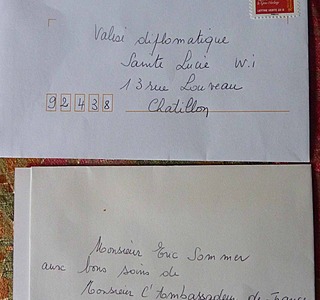 Valise diplomatique
Sainte Lucie W.i
13 rue Louveau
92438 Chatillon
Monsieur Eric Sommer
aux bons soins de
Monsieur l'Ambassadeur de France